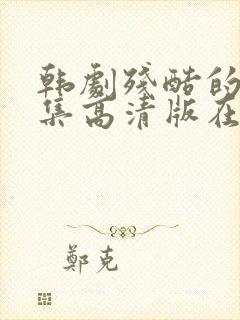 韩劇殘酷的
集高清版在
鄭克